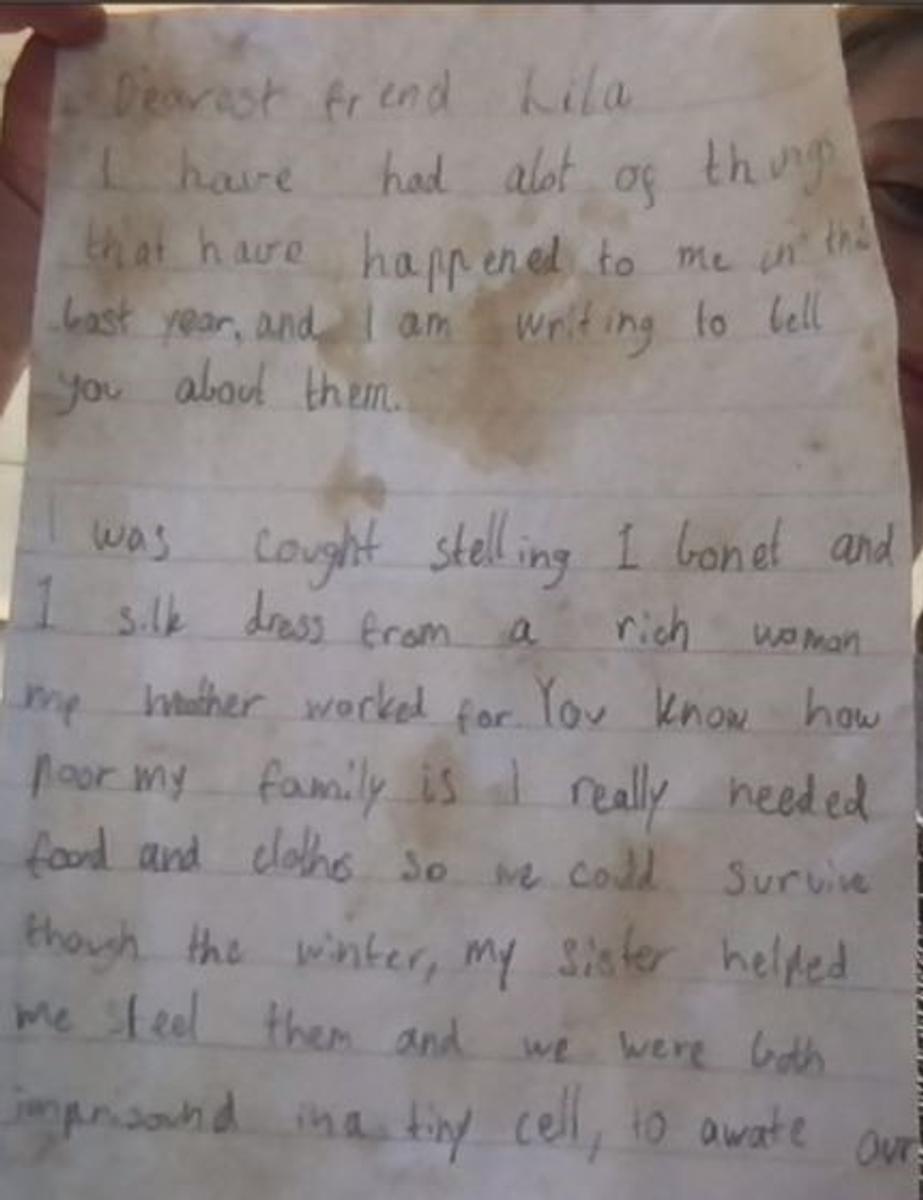 Dearest friend Lila
I have had alot of things
that have happened to me in the
last year, and I am writing to tell
you about them.
I was cought stelling 1 bonet and
1 silk dress from a rich woman
my mother worked for You know how
poor my family is I really needed
food and cloths so we could survive
though the winter, my sister helped
me steel them and we were both
imprisound in a tiny cell, to awate our